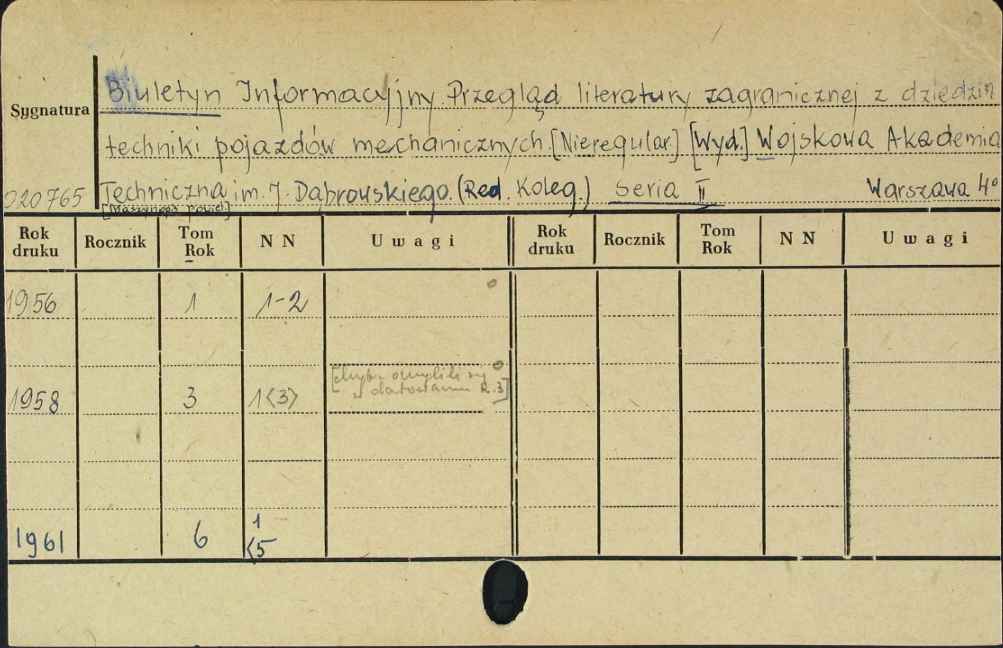 Sygnatura
Biuletyn Informacyjny. Przegląd literatury zagranicznej z dziedzin
techniki pojazdów mechanicznych. [Nieregular.] [Wyd.] Wojskowa Akademia
020765 Techniczna im. J. Dąbrowskiego. (Red. Koleg.) Seria II Warszawa 4°
Rok druku Rocznik Tom Rok N N Uwagi Rok druku Rocznik Tom Rok N N Uwagi
1956 1 1-2
[chyba omylili się
1958 3 1<3> w datowaniu R. 3]
1961 6 1
<5